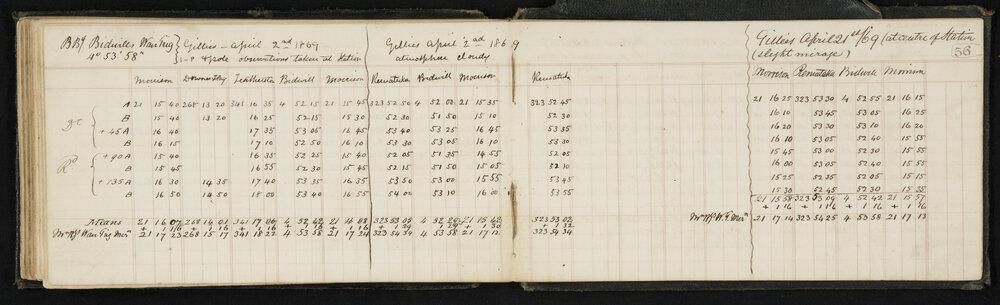 BB' Bidwills Wairing Gillies - April 2nd 1869 Gillies April 2nd 1869 Gillies April 21st/69 (at centre of Station
4° 53' 58" observations taken at Station atmosphere cloudy (slight mirage) 56
Morrison Featherston Bidwill Morrison Remutaka Bidwill Morrison Remutaka Morrison Remutaka Bidwill Morrison
A 21 15 40 268 13 20 341 16 35 4 52 15 21 15 45 323 52 50 4 52 00 21 15 35 323 52 45 21 16 25 323 53 30 4 52 55 21 16 15
B 15 40 13 20 16 25 52 15 15 30 52 30 51 50 15 10 52 30 16 10 53 45 53 05 16 10
+45 A 16 40 17 35 53 05 16 45 53 40 53 25 16 45 53 35 16 20 53 30 53 10 16 20
B 16 15 17 10 52 50 16 10 53 30 53 05 16 10 53 30 16 05 53 10 52 40 15 55
+90 A 15 40 16 35 52 25 15 40 52 05 51 35 14 55 52 05 15 45 53 00 52 30 15 55
B 15 45 16 55 52 30 15 45 52 15 51 50 15 05 52 10 16 00 53 05 52 40 15 55
+135 A 16 30 14 35 17 40 53 35 16 35 53 50 53 00 15 55 53 45 15 25 52 35 52 05 15 15
B 16 50 14 50 18 00 53 40 16 55 54 00 53 10 16 00 53 55 15 30 52 45 52 30 15 55
21 15 58 323 53 09 4 52 42 21 15 57
Means 21 16 07 268 14 01 341 17 06 4 52 42 21 16 08 323 53 05 4 52 21 15 42 323 53 02 + 1 16 + 1 16 + 1 16 + 1 16
+ 1 16 + 1 16 + 1 16 + 1 16 + 1 16 + 1 29 + 1 29 + 1 30 + 1 32 21 17 14 323 54 25 4 53 58 21 17 13
21 17 23 268 15 17 341 18 22 4 53 58 21 17 24 323 54 34 4 53 58 21 17 12 323 54 34